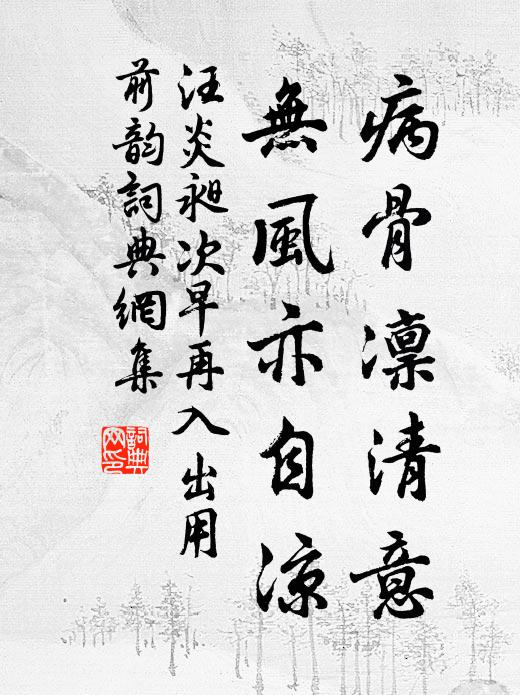 病骨凛清意
無風亦自涼
汪炎昶次早再入出用
前韵詞典網集
詞典
网印